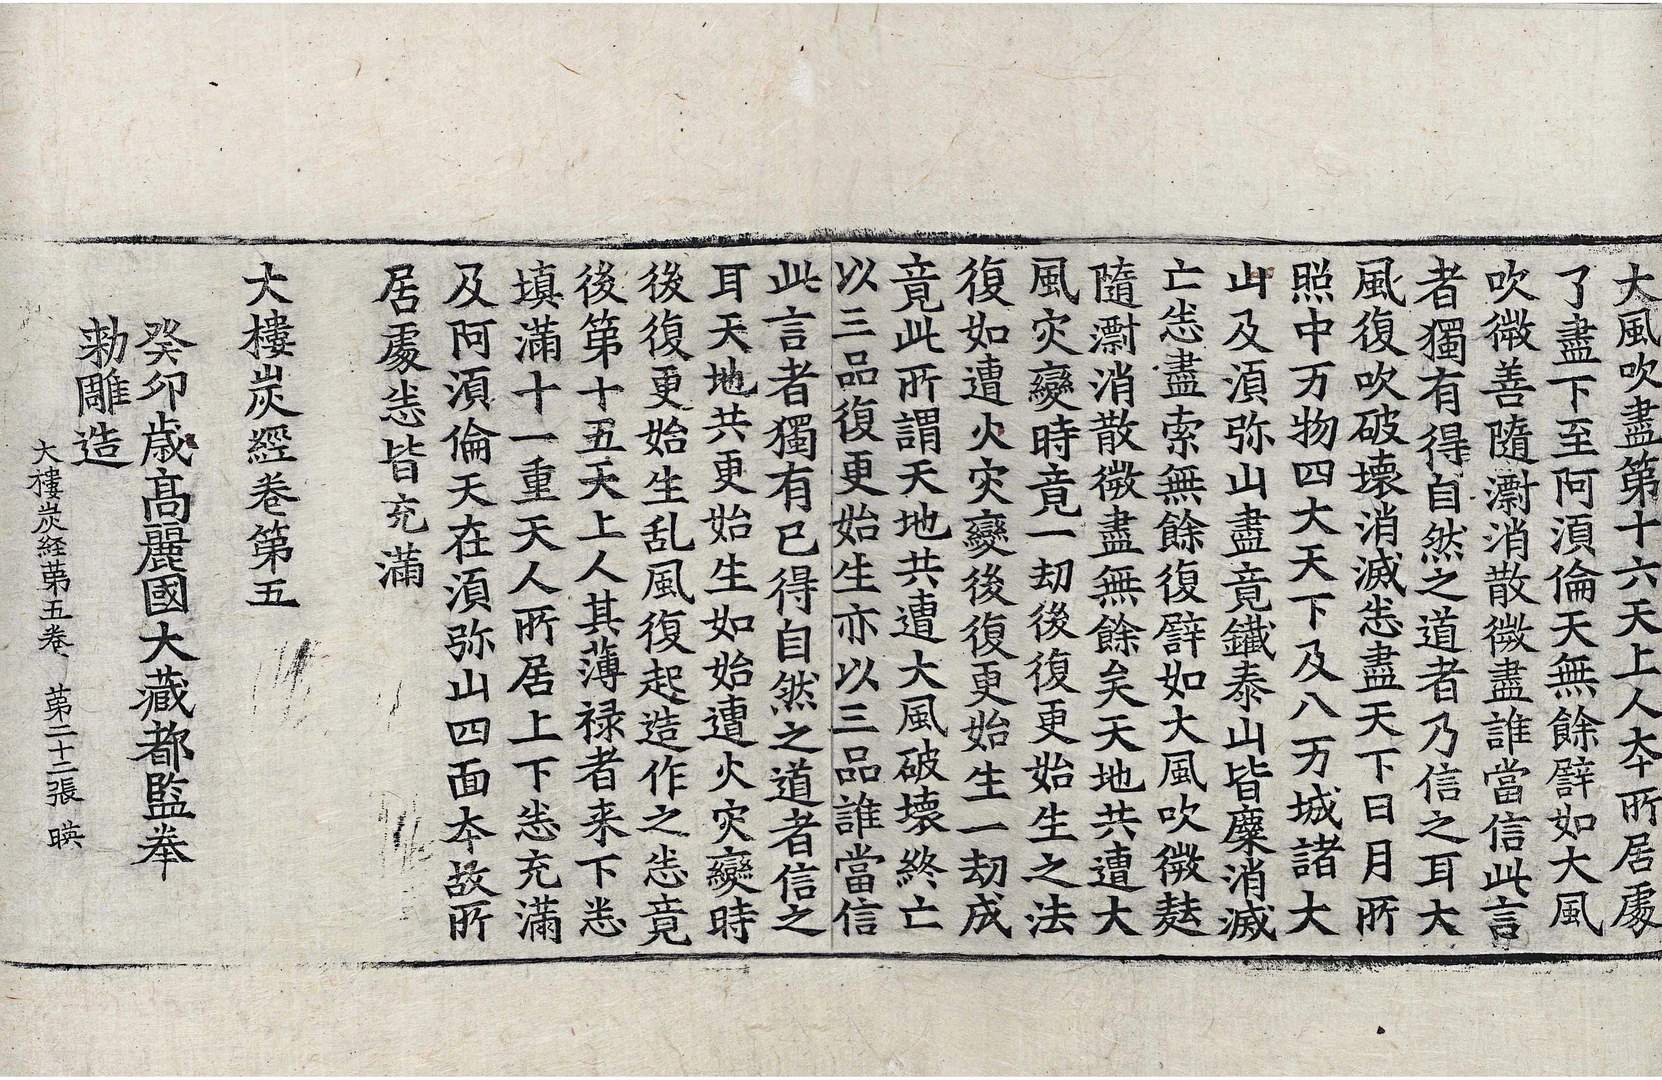 大風吹盡第十六天上人本所居處
了盡下至阿湏倫天無餘譬如大風
吹微善隨澍消散微盡誰當信此言
者獨有得自然之道者乃信之耳大
風復吹破壞消滅悉盡天下日月所
照中万物四大天下及八万城諸大
山及湏弥山盡竟鐵泰山皆糜消滅
亡悉盡索無餘復譬如大風吹微麩
隨澍消散微盡無餘矣天地共遭大
風灾變時竟一劫後復更始生之法
復如遭火灾變後復更始生一劫成
竟此所謂天地共遭大風破壞終亡
以三品復更始生亦以三品誰當信
此言者獨有已得自然之道者信之
耳天地共更始生如始遭火灾變時
後復更始生乱風復起造作之悉竟
後第十五天上人其薄禄者来下悉
填滿十一重天人所居上下悉充滿
及阿湏倫天在湏弥山四面本故所
居處悉皆充滿
大樓炭經卷第五
癸卯歳高麗國大藏都監奉
勅雕造
大樓炭経第五卷　第二十二張　暎